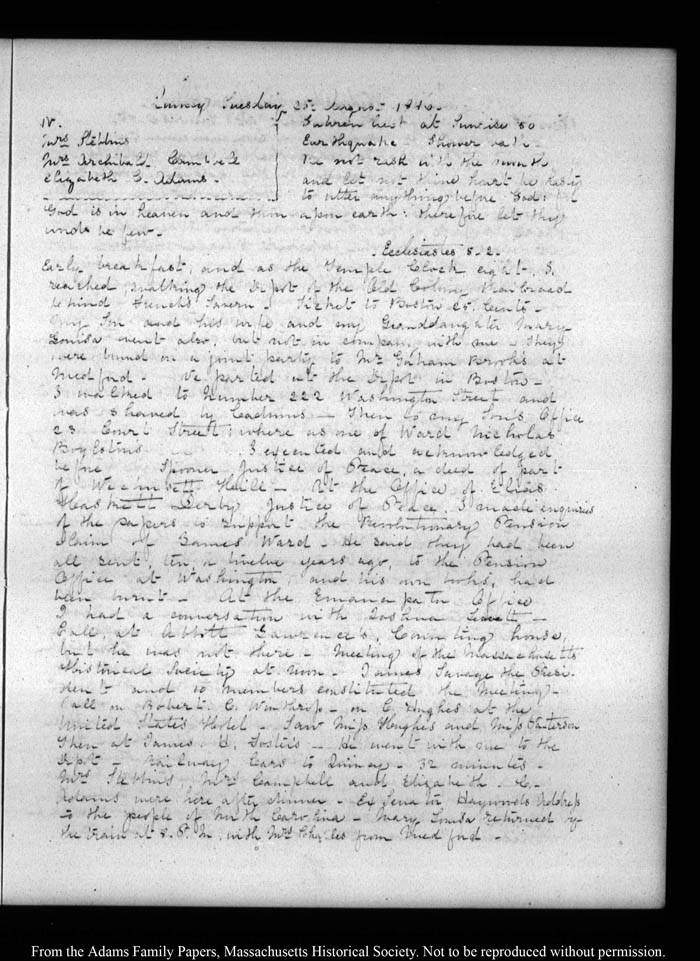 Quincy Tuesday 25. August 1846.
IV.
Mrs Stebbins
Mrs Archibald Campbell
Elizabeth C. Adams.
Fahrenheit at Sunrise 50
Earthquake Shower bath
Be not rash with thy mouth
and let not thine heart be hasty
to utter any thing before God: for
God is in heaven and thou upon earth: therefore let thy
words be few.
Ecclesiastes 5.2.
Early breakfast, and as the Temple Clock eight, I
reached walking the Depot of the Old Colony Railroad
behind French's Tavern. Ticket to Boston 25. Cents.
My Son and his wife and my Granddaughter Mary
Louisa went also, but not in company with me. They
were bound on a joint party to Mr Graham Brooks at
Medford. We parted at the Depot in Boston.
I walked to Number 222 Washington Street and
was shaved by Cadmus. Then to my Son's Office
23. Court Street; where as one of Ward Nicholas
Boylston's I executed and acknowledged
before Spooner Justice of Peace, a deed of part
of Wachusett Hill. At the Office of Elias
Haskett Derby Justice of Peace, I made enquiries
of the papers to support the Revolutionary Pension
claim of James Ward. He said they had been
all sent, ten, or twelve years ago, to the Pension
Office at Washington, and his own books, had
been burnt. At the Emancipator Office
I had a conversation with Joshua Leavitt
Call, at Abbott Lawrence's, Counting house,
but he was not there. Meeting of the Massachusetts
Historical Society at noon. James Savage the Presi-
dent and 10 members constituted the Meeting.
Call on Robert C. Winthrop. on C. Hughes at the
United States Hotel. Saw Miss Hughes and Miss Patterson
Then at James H. Foster's. He went with me to the
Depot. Railway Cars to Quincy. 32 minutes.
Mrs Stebbins, Mrs Campbell and Elizabeth C.
Adams were here after dinner. Ex Senator Haywood's Address
to the people of North Carolina. Mary Louisa returned by
the train at 8. P.M. with Mrs Charles from Medford.
From the Adams Family Papers, Massachusetts Historical Society. Not to be reproduced without permission.